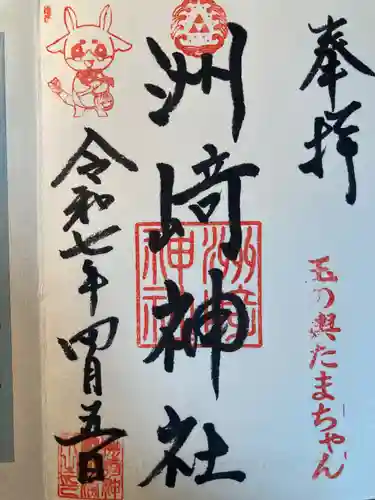 奉拝
玉の輿たまちゃん
洲崎神社
令和七年四月五日